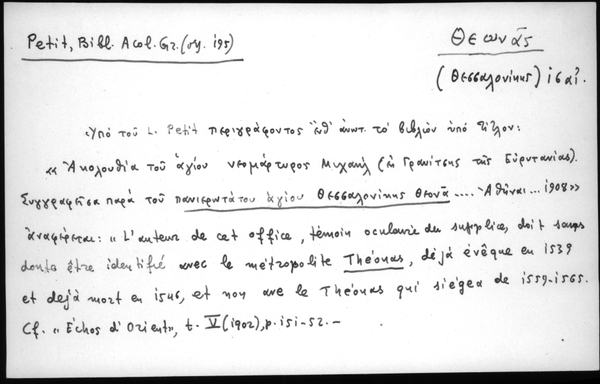 Petit, Bibl. Acol. Gr. (σμ. 195)
Θεωνᾶς
(Θεσσαλονίκης) ις αἰ.
Ὑπό τοῦ L. Petit περιγράφοντος ἔνθ' ἀνωτ. τό βιβλίον ὑπό τίτλον:
«Ἀκολουθία τοῦ ἁγίου νεομάρτυρος Μιχαήλ (ἐκ Γρανίτσης τῆς Εὐρυτανίας).
Συγγραφεῖσα παρά τοῦ πανιερωτάτου ἁγίου Θεσσαλονίκης Θεονᾶ .... Ἀθῆναι ... 1908»
ἀναφέρεται: «L'auteur de cet office, témoin oculaire du supplice, doit sans
doute être identifié avec le métropolite Théonas, déjà évêque en 1539
et déjà mort en 1546, et non avec le Théonas qui siégea de 1559-1565.
Cf. «Échos d'Orient», t. V (1902), p. 151-52. —